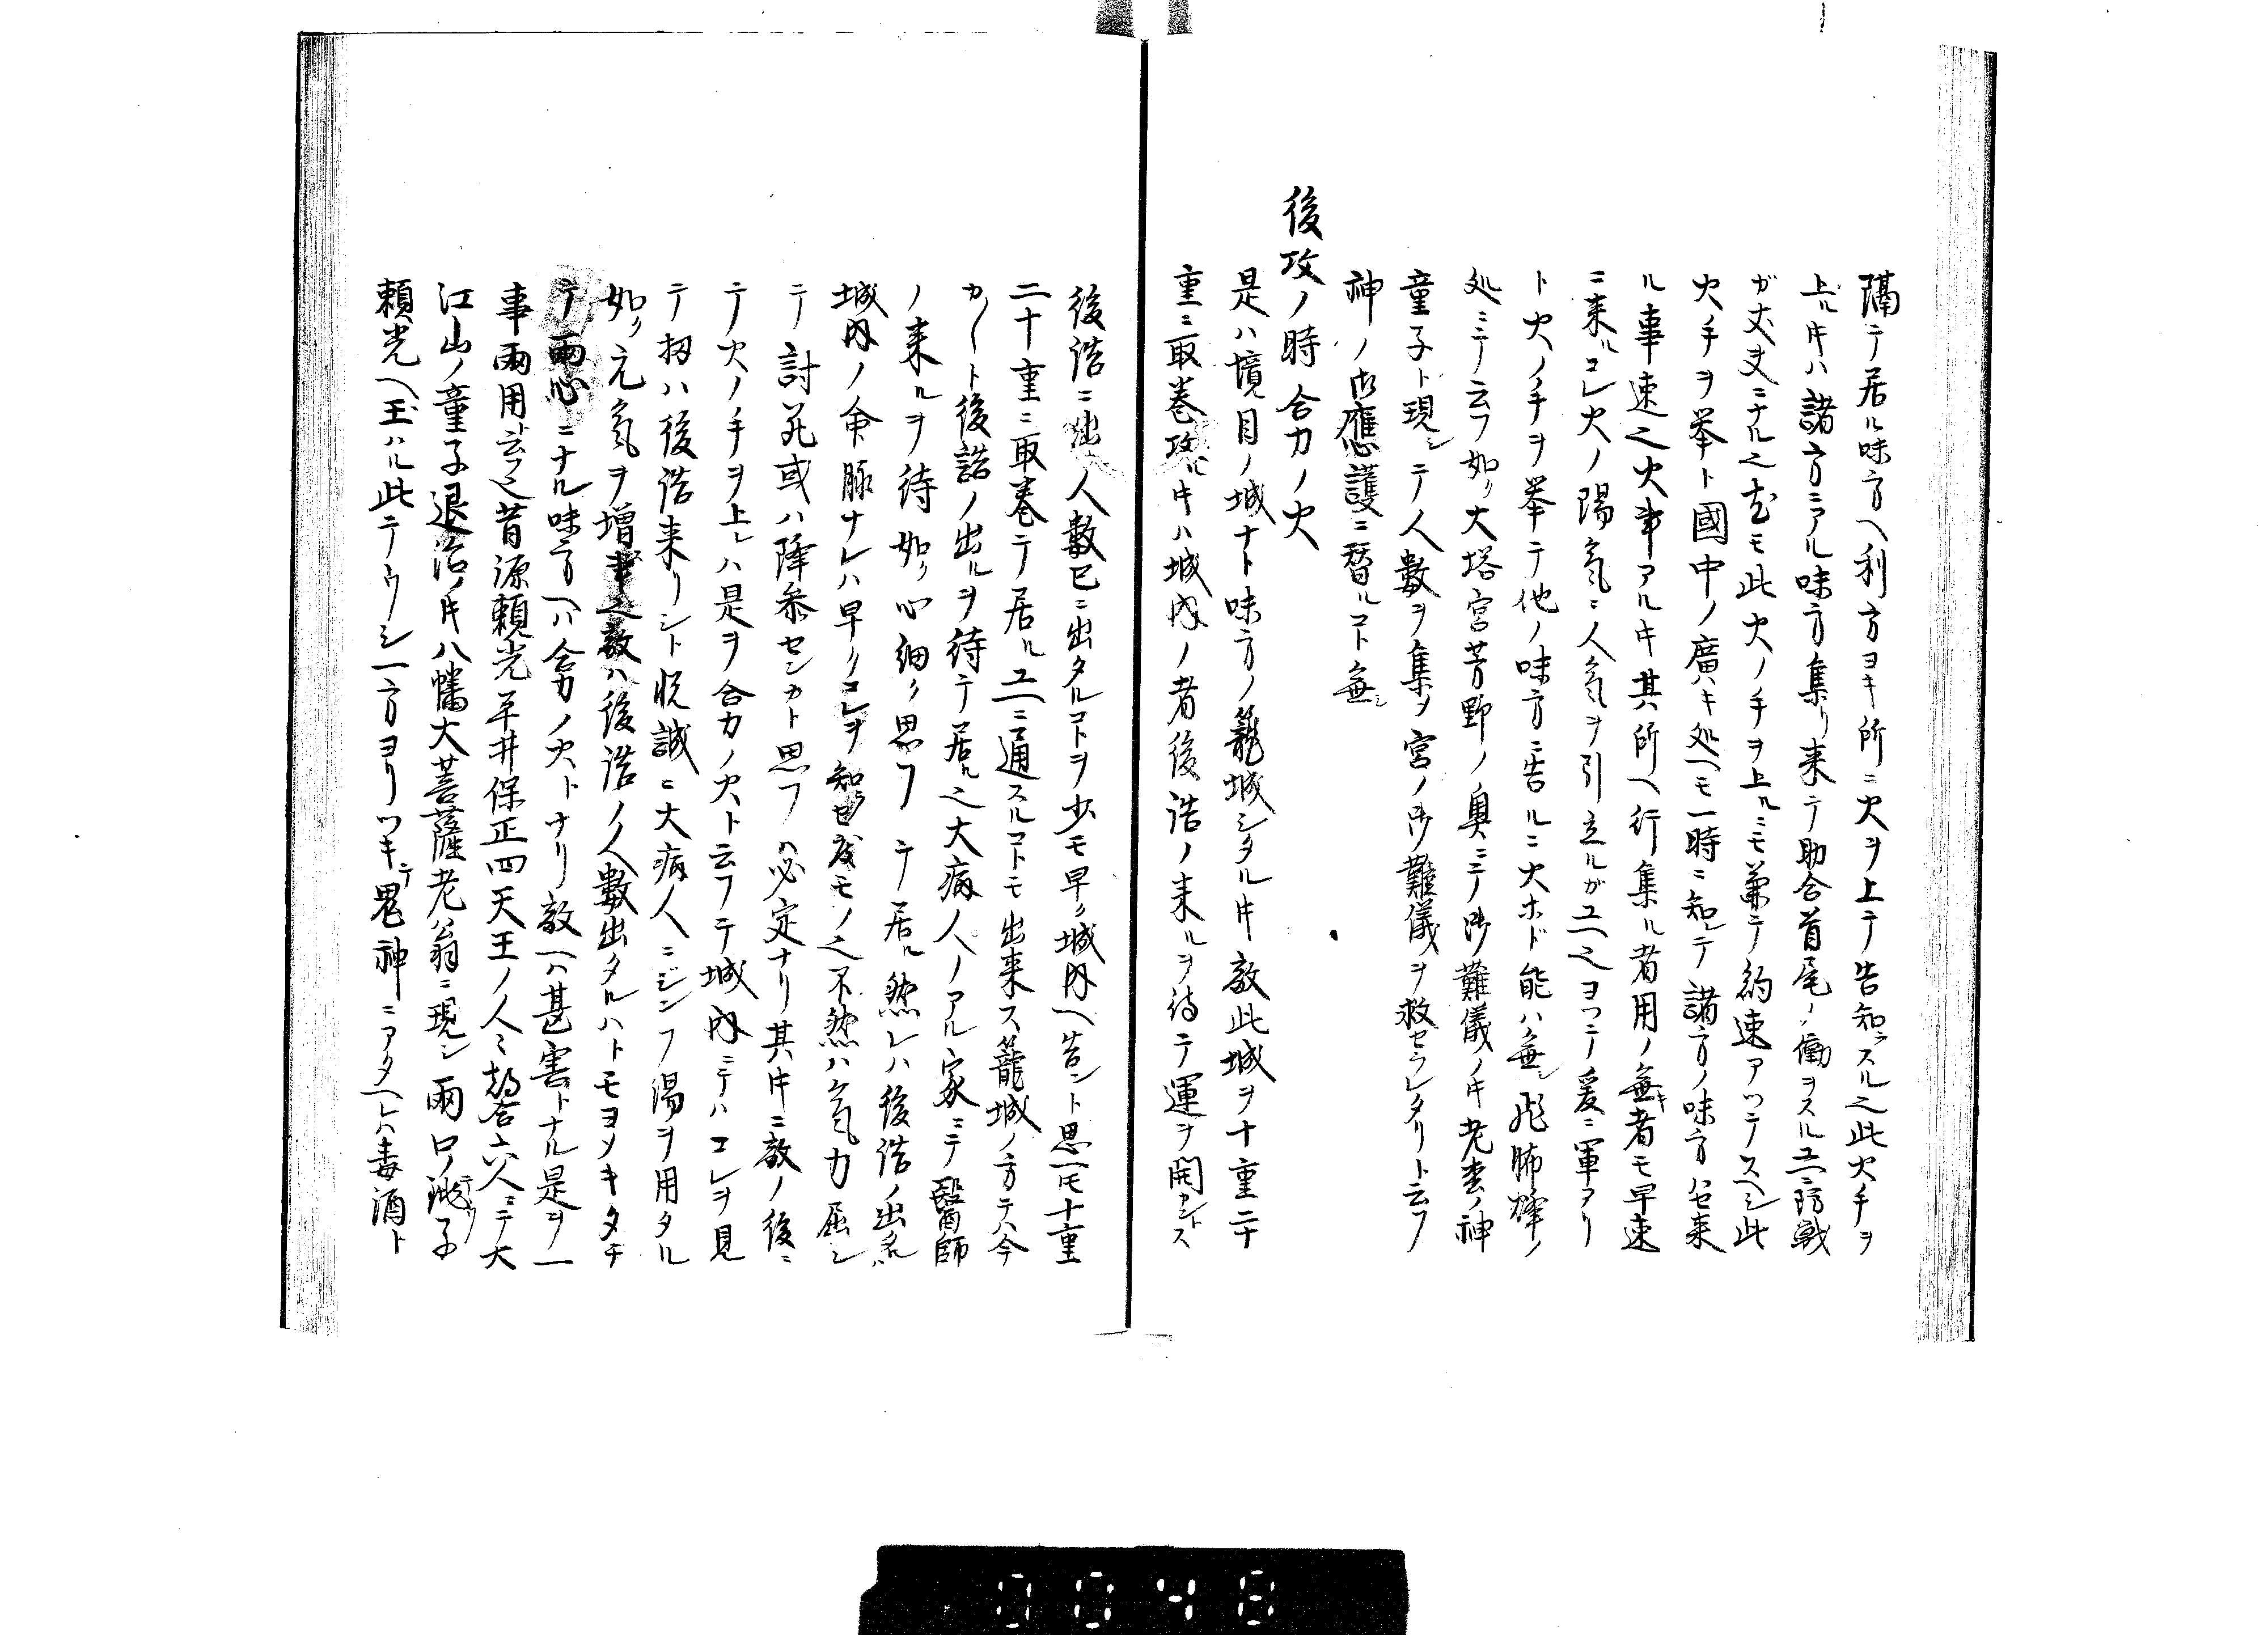 隔テ居ル味方ヘ利方ヨキ所ニ火ヲ上テ告知ラスル之此火手ヲ
上ル片ハ諸方ニアル味方集リ来テ助合首尾ノ働ヲスルユヘニ防戦
ガ丈夫ニナル之尤モ此火ノ手ヲ上ルニモ兼テ約速アツテスヘシ此
火手ヲ挙ト國中ノ廣キ処ヘモ一時ニ知レテ諸方ノ味方ハセ来
ル事速之火事アル片其所ヘ行集ル者用ノ無キ者モ早速
ニ来ルコレ火ノ陽氣ニ人氣ヲ引立ルガユヘ之ヨツテ爰ニ軍アリ
ト火ノ手ヲ挙テ他ノ味方ニ告ルニ火ホド能ハ無シ飛脚烽ノ
処ニテ云フ如ク大塔宮芳野ノ奥ニテノ御難儀ノ片老松ノ神
童子ト現シテ人數ヲ集メ宮ノ御難儀ヲ救セラレタリト云フ
神ノ御應護ニ替ルコト無シ
後攻ノ時合力ノ火
是ハ境目ノ城ナト味方ノ籠城シタル片敵此城ヲ十重二十
重ニ取巻攻ル片ハ城内ノ者後詰ノ来ルヲ待テ運ヲ開ントス
後詰ニ出人數已ニ出タルコトヲ少モ早ク城内ヘ告ント思ヘ圧十重
二十重ニ取巻テ居ルユヘニ通スルコトモ出来ス籠城ノ方テハ今
カ〱ト後詰ノ出ルヲ待テ居ル之大病人ノアル家ニテ醫師
ノ来ルヲ待如ク心細ク思フテ居ル然レハ後詰ノ出ルハ
城内ノ命脉ナレハ早クコレヲ知ラセ度モノ之不然ハ氣力屈シ
テ討死或ハ降参センカト思フハ必定ナリ其片ニ敵ノ後ニ
テ火ノ手ヲ上レハ是ヲ合力ノ火ト云フテ城内ニテハコレヲ見
テ扨ハ後詰来リシト悦誠ニ大病人ニジンフ湯ヲ用タル
如ク元氣ヲ増事之敵ハ後詰ノ人數出タルハトモヨメキタチ
テ兩心ニナル味方ヘハ合力ノ火トナリ敵ヘハ甚害トナル是ヲ一
事兩用ト云フ之昔源頼光平井保正四天王ノ人〻都合六人ニテ大
江山ノ童子退治ノ片八幡大菩薩老翁ニ現シ兩口ノ銚子
頼光ヘ玉ハル此テウシ一方ヨリツキテ鬼神ニアタヘレハ毒酒ト
0048